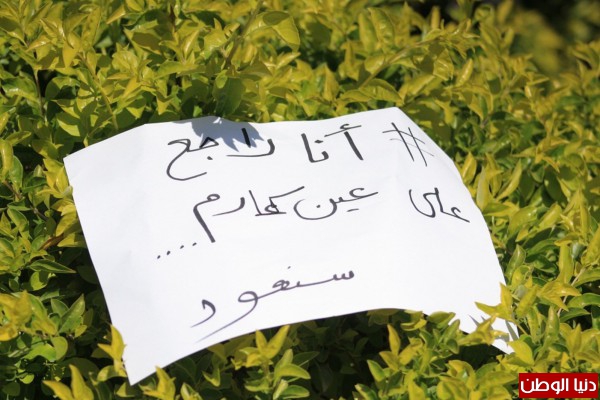 # أنا راجع
على عين كارم....
سنعود
دنيا الوطن